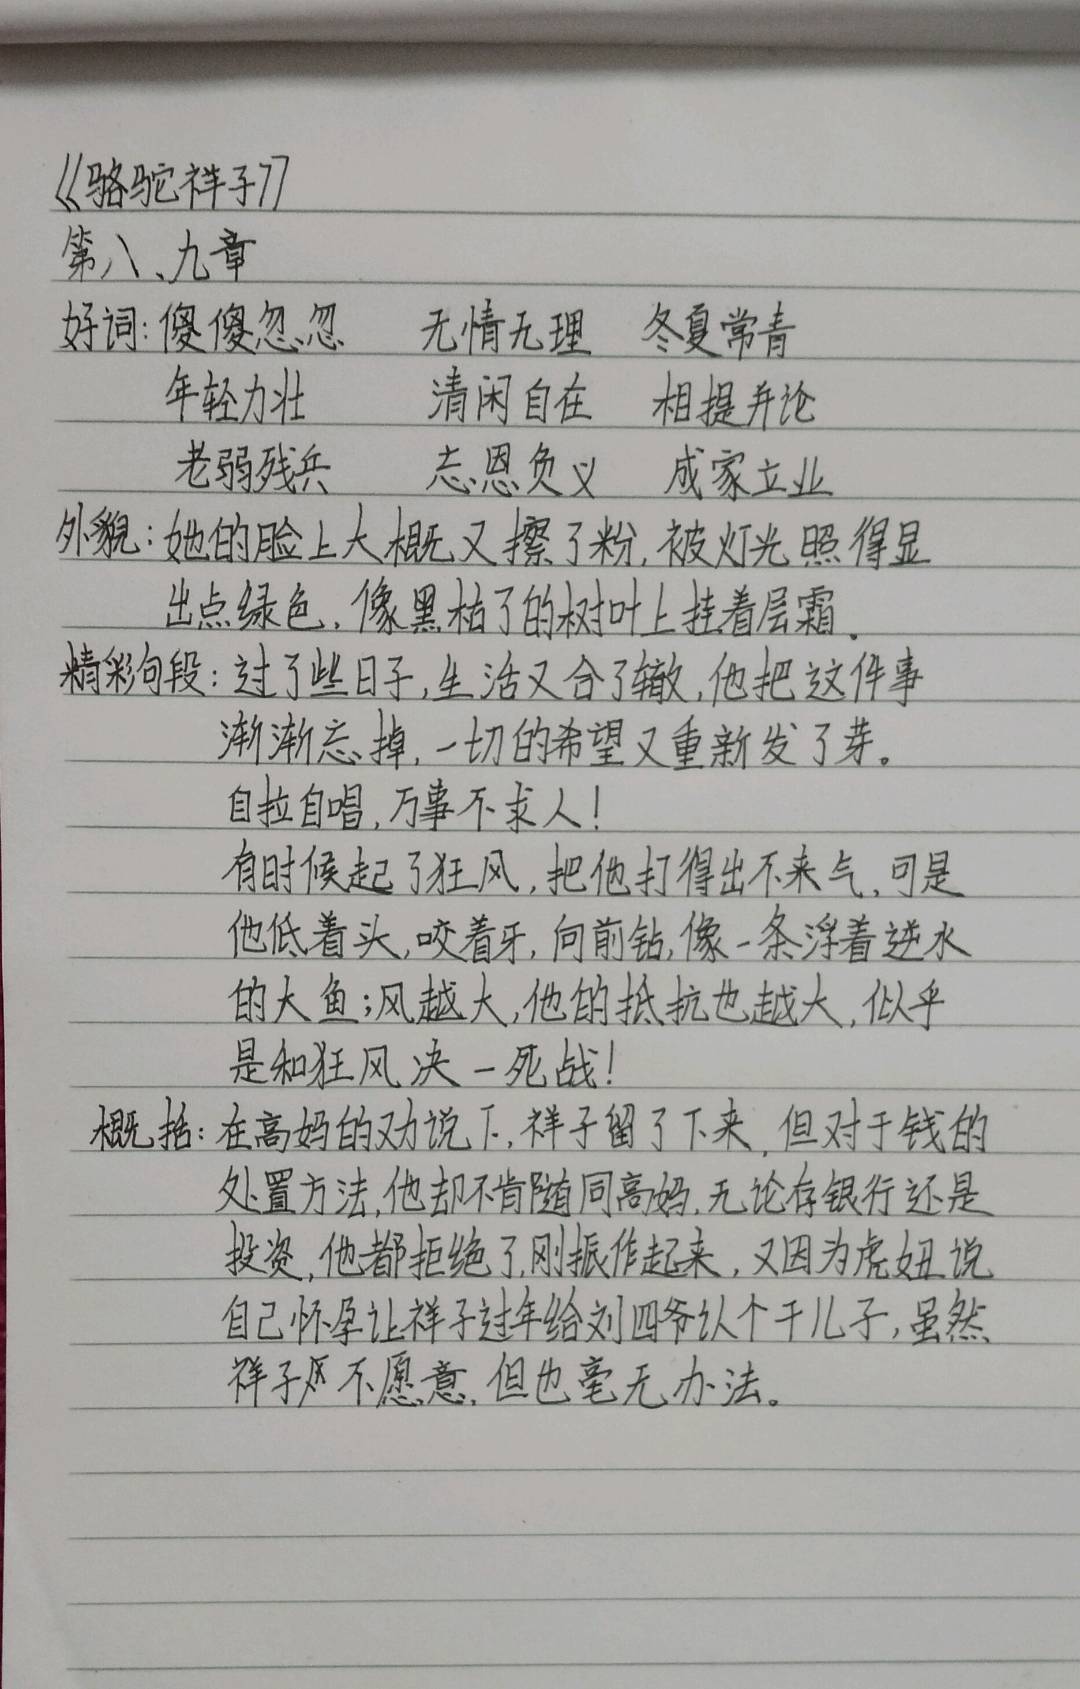 《骆驼祥子》
第八、九章
好词：傻傻忽忽 无情无理 冬夏常青
年轻力壮 清闲自在 相提并论
老弱残兵 忘恩负义 成家立业
外貌：她的脸上大概又擦了粉，被灯光照得显
出点绿色，像黑枯了的树叶上挂着层霜。
精彩句段：过了些日子，生活又合了辙，他把这件事
渐渐忘掉，一切的希望又重新发了芽。
自拉自唱，万事不求人！
有时候起了狂风，把他打得出不来气，可是
他低着头，咬着牙，向前钻，像一条浮着逆水
的大鱼；风越大，他的抵抗也越大，似乎
是和狂风决一死战！
概括：在高妈的劝说下，祥子留了下来，但对于钱的
处置方法，他却不肯随同高妈，无论存银行还是
投资，他都拒绝了，刚振作起来，又因为虎妞说
自己怀孕让祥子过年给刘四爷认个干儿子，虽然
祥子不愿意，但也毫无办法。